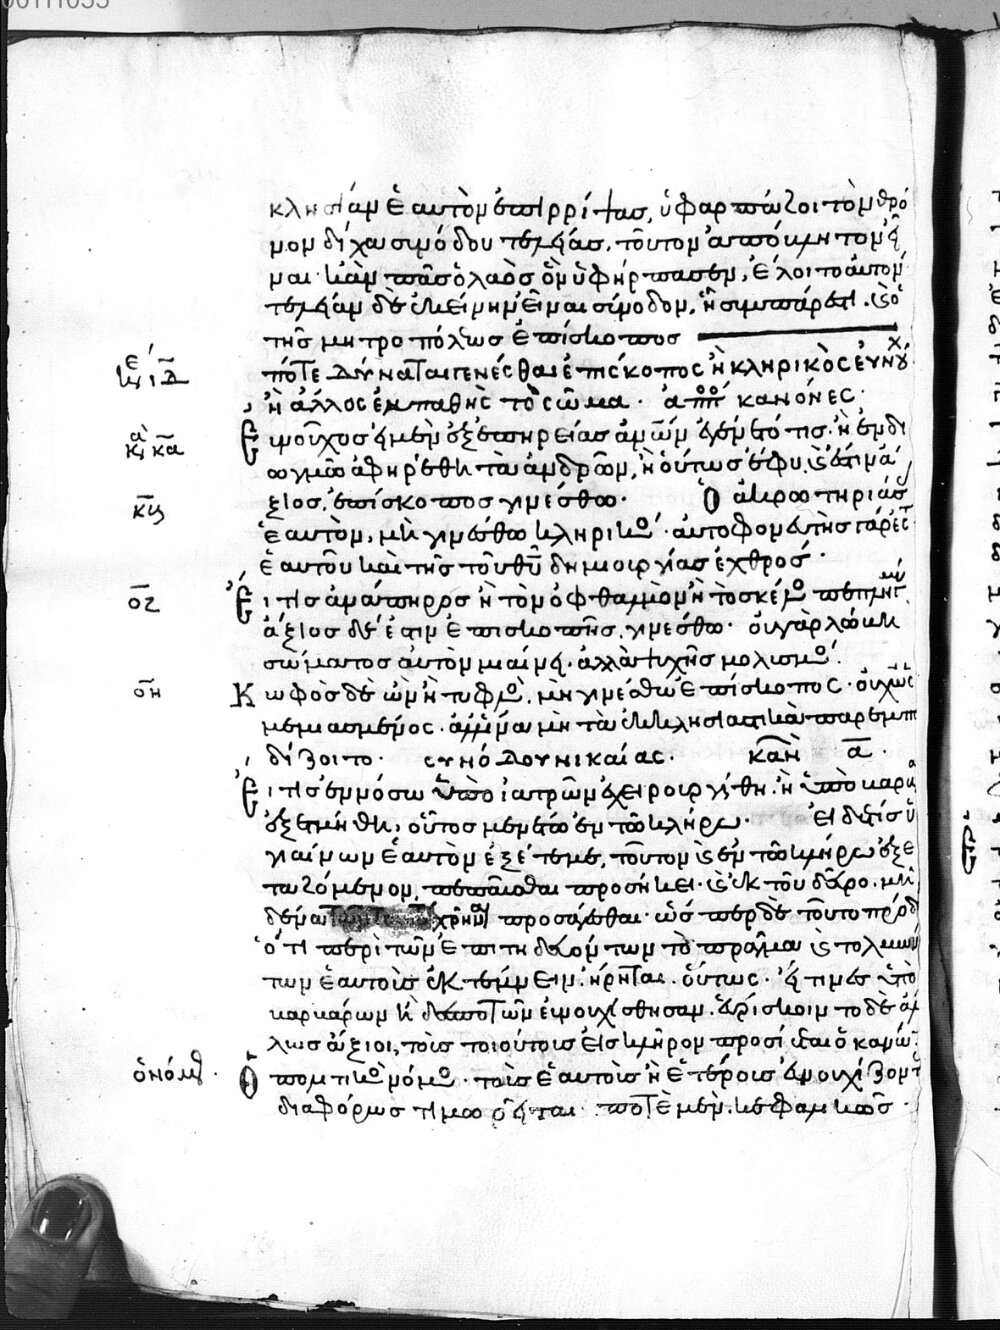 κλησίαν ἑαυτὸν ἐπιρρίψας, ὑφαρπάζοι τὸν θρό
νον δίχα συνόδου τελείας, τοῦτον ἀπόβλητον εἶ
ναι· κἂν πᾶς ὁ λαὸς ὃν ὑφήρπασεν, ἕλοιτο αὐτόν·
τελείαν δὲ ἐκείνην εἶναι σύνοδον, ᾗ συμπάρεστι καὶ ὁ
τῆς μητροπόλεως ἐπίσκοπος
πότε δύναται γενέσθαι ἐπίσκοπος ἢ κληρικὸς εὐνοῦχ
ἢ ἄλλος ἐμπαθὴς τὸ σῶμα· ἀπο κανόνες·
κα Εὐνοῦχος εἰ μὲν ἐξ ἐπηρείας ἀνων ἐγένετό τις· ἢ ἐν δι
ωγμῶ ἀφηρέθη τὰ ἀνδρῶν, ἢ οὕτως ἔφυ, καὶ ἔστιν ἄ
κβ ξιος, ἐπίσκοπος γινέσθω· Ὁ ἀκρωτηριάσ
ἑαυτὸν, μὴ γινέσθω κληρικὸ· αὐτοφονευτὴς γάρ ἐστ
ἑαυτοῦ καὶ τῆς τοῦ θυ δημιουργίας ἐχθρός·
οζ Εἴ τις ἀνάπηρος ἢ τὸν ὀφθαλμὸν ἢ τὸ σκέλο πεπληγμ
ἄξιος δέ ἐστιν ἐπισκοπῆς, γινέσθω· οὐ γὰρ λώβη
σώματος αὐτὸν μιαίνει· ἀλλὰ ψυχῆς μολυσμὸ·
οη Κωφὸς δὲ ὢν ἢ τυφλὸ, μὴ γινέσθω ἐπίσκοπος· οὐχ ὡς
μεμιασμένος· ἀλλ' ἵνα μὴ τὰ ἐκκλησιαστικὰ παρεμπο
δίζοιτο· συνόδου νικαίας· καν α·
Εἴ τις ἐν νόσω ὑπὸ ἰατρῶν ἐχειρουργήθη· ἢ ὑπὸ βαρβά
ἐξετμήθη, οὗτος μενέτω ἐν τῶ κλήρω· Εἰ δέ τις ὑ
γιαίνων ἑαυτὸν ἐξέτεμε, τοῦτον καὶ ἐν τῶ κλήρω ἐξε
ταζόμενον, πεπαῦσθαι προσήκει· καὶ ἐκ τοῦ δεῦρο, μη
δένα χρῆναι προσάγεσθαι· ὥσπερ δὲ τοῦτο πρόδ
ὅτι περὶ τῶν ἐπιτηδευόντων τὸ πρᾶγμα καὶ τολμών
των ἑαυτοὺς ἐκτέμνειν, εἴρηται· οὕτως· εἴ τινες ὑπὸ
βαρβάρων ἢ δεσποτῶν εὐνουχίσθησαν· εὑρίσκοιντο δὲ ἄλ
λως ἄξιοι, τοὺς τοιούτους εἰς κλῆρον προσίεται ὁ κανών·
ὁ νόμ· Ὁ πολιτικὸ νόμο· τοὺς ἑαυτοὺς ἢ ἑτέρους εὐνουχίζοντ
διαφόρως τιμωρεῖται· ποτὲ μὲν, κεφαλικῶς·